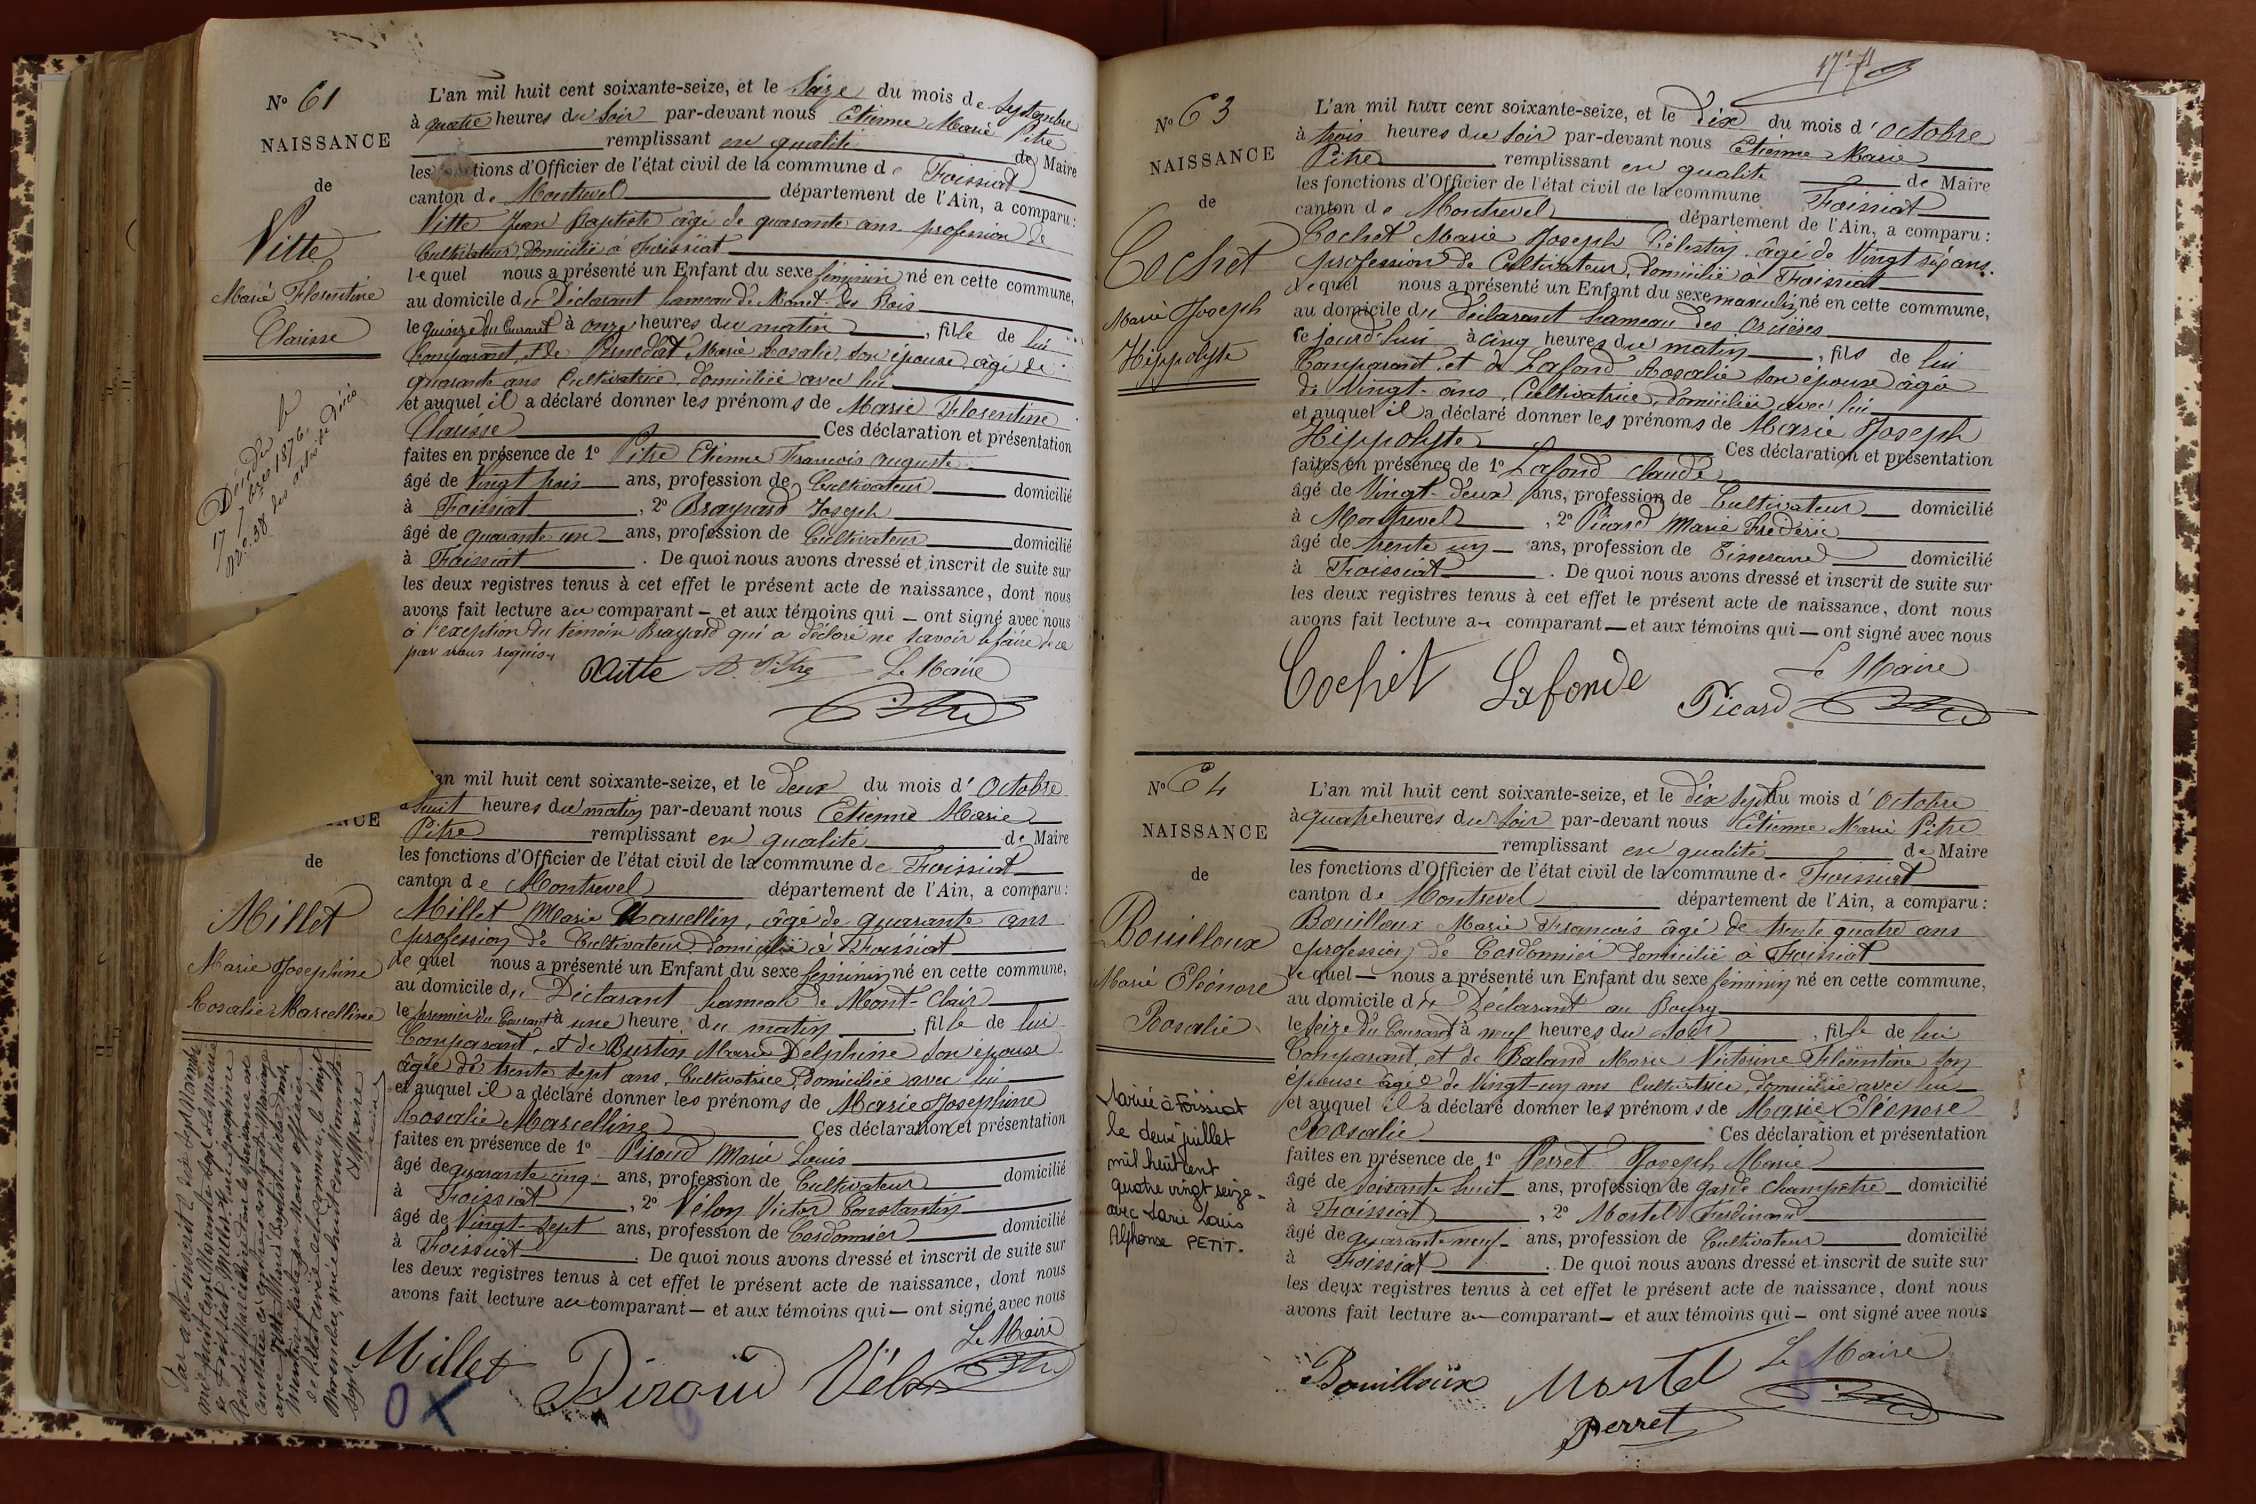 N° 61
NAISSANCE
de
Vitte
Marie Florentine
Clarisse
Décédée le
17 7bres 1876,
N°. 38 des actes de décès
L'an mil huit cent soixante-seize, et le Seize du mois de Septembre
à quatre heures du Soir par-devant nous Etienne Marie Pitre
remplissant en qualité de Maire
les fonctions d'Officier de l'état civil de la commune de Foissiat
canton de Montrevel département de l'Ain, a comparu :
Vitte Jean Baptiste âgé de quarante ans profession de
Cultivateur, domicilié à Foissiat
lequel nous a présenté un Enfant du sexe féminin né en cette commune,
au domicile du Déclarant hameau de des Bois
le quinze du Courant à onze heures du matin, fille de lui
Comparant, et de Marie Rosalie, son épouse, âgée de
quarante ans Cultivatrice, domiciliée avec lui
et auquel il a déclaré donner les prénoms de Marie Florentine
Clarisse Ces déclaration et présentation
faites en présence de 1° Pitre Etienne François Auguste
âgé de Vingt trois ans, profession de Cultivateur domicilié
à Foissiat, 2° Brayard Joseph
âgé de quarante un ans, profession de Cultivateur domicilié
à Foissiat. De quoi nous avons dressé et inscrit de suite sur
les deux registres tenus à cet effet le présent acte de naissance, dont nous
avons fait lecture au comparant — et aux témoins qui — ont signé avec nous
à l'exception du témoin Brayard qui a déclaré ne savoir le faire de ce
par nous requis.
Vitte A. Pitre Le Maire
Pitre
NCE
de
Millet
Marie Joséphine
Rosalie Marcelline
L'an mil huit cent soixante-seize, et le Deux du mois d'Octobre
à huit heures du matin par-devant nous Etienne Marie
Pitre remplissant en qualité de Maire
les fonctions d'Officier de l'état civil de la commune de Foissiat
canton de Montrevel département de l'Ain, a comparu :
Millet Marie Marcellin, âgé de quarante ans
profession de Cultivateur domicilié à Foissiat
le quel nous a présenté un Enfant du sexe féminin né en cette commune,
au domicile du Déclarant hameau de Mont-Clair
le premier du Courant à une heure du matin, fille de lui
Comparant, et de Burtin Marie Delphine son épouse
âgée de trente sept ans, Cultivatrice, domiciliée avec lui
et auquel il a déclaré donner les prénoms de Marie Joséphine
Rosalie Marcelline Ces déclaration et présentation
faites en présence de 1° Piroud Marie Louis
âgé de quarante cinq ans, profession de Cultivateur domicilié
à Foissiat, 2° Vélon Victor Constantin
âgé de Vingt-Sept ans, profession de Cordonnier domicilié
à Foissiat. De quoi nous avons dressé et inscrit de suite sur
les deux registres tenus à cet effet le présent acte de naissance, dont nous
avons fait lecture au comparant — et aux témoins qui — ont signé avec nous
Millet Piroud Vélon Le Maire
Pitre
N° 63
NAISSANCE
de
Cochet
Marie Joseph
Hippolyte
L'an mil huit cent soixante-seize, et le Dix du mois d'Octobre
à trois heures du Soir par-devant nous Etienne Marie
Pitre remplissant en qualité de Maire
les fonctions d'Officier de l'état civil de la commune Foissiat
canton de Montrevel département de l'Ain, a comparu :
Cochet Marie Joseph Célestin, âgé de Vingt six ans.
profession de Cultivateur, domicilié à Foissiat
le quel nous a présenté un Enfant du sexe masculin né en cette commune,
au domicile du déclarant hameau des Orcières
ce jourd'hui à cinq heures du matin, fils de lui
Comparant, et de Lafond Rosalie son épouse âgée
de Vingt ans, Cultivatrice, domiciliée avec lui
et auquel il a déclaré donner les prénoms de Marie Joseph
Hippolyte Ces déclaration et présentation
faites en présence de 1° Lafond Claude
âgé de Vingt-deux ans, profession de Cultivateur domicilié
à Montrevel, 2° Picard Marie Frédéric
âgé de trente un ans, profession de Tisserand domicilié
à Foissiat. De quoi nous avons dressé et inscrit de suite sur
les deux registres tenus à cet effet le présent acte de naissance, dont nous
avons fait lecture au comparant — et aux témoins qui — ont signé avec nous
Cochet Lafonde Picard Le Maire
Pitre
N° 64
NAISSANCE
de
Bouilloux
Marie Eléonore
Rosalie
Mariée à Foissiat
le deux juillet
mil huit cent
quatre vingt seize
avec Marie Louis
Alphonse PETIT.
L'an mil huit cent soixante-seize, et le dix sept du mois d'Octobre
à quatre heures du Soir par-devant nous Etienne Marie Pitre
remplissant en qualité de Maire
les fonctions d'Officier de l'état civil de la commune de Foissiat
canton de Montrevel département de l'Ain, a comparu :
Bouilloux Marie François âgé de trente quatre ans
profession de Cordonnier domicilié à Foissiat
le quel — nous a présenté un Enfant du sexe féminin né en cette commune,
au domicile du Déclarant au Bourg
le Seize du Courant à neuf heures du Soir, fille de lui
Comparant, et de Baland Marie Victorine Florentine son
épouse âgée de Vingt-un ans Cultivatrice, domiciliée avec lui
et auquel il a déclaré donner les prénoms de Marie Eléonore
Rosalie Ces déclaration et présentation
faites en présence de 1° Perret Joseph Marie
âgé de Soixante huit ans, profession de garde champêtre domicilié
à Foissiat, 2° Mortel Ferdinand
âgé de quarante-neuf ans, profession de Cultivateur domicilié
à Foissiat. De quoi nous avons dressé et inscrit de suite sur
les deux registres tenus à cet effet le présent acte de naissance, dont nous
avons fait lecture au comparant — et aux témoins qui — ont signé avec nous
Bouilloux Mortel Le Maire
Perret Pitre